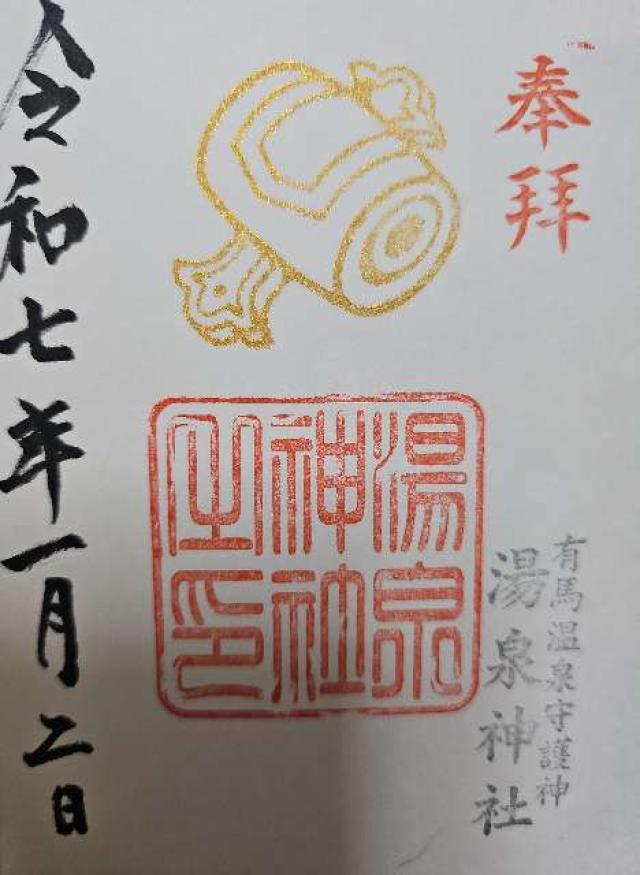 奉拝
有馬温泉守護神
湯泉神社
湯泉
神社
之印
令和七年一月二日